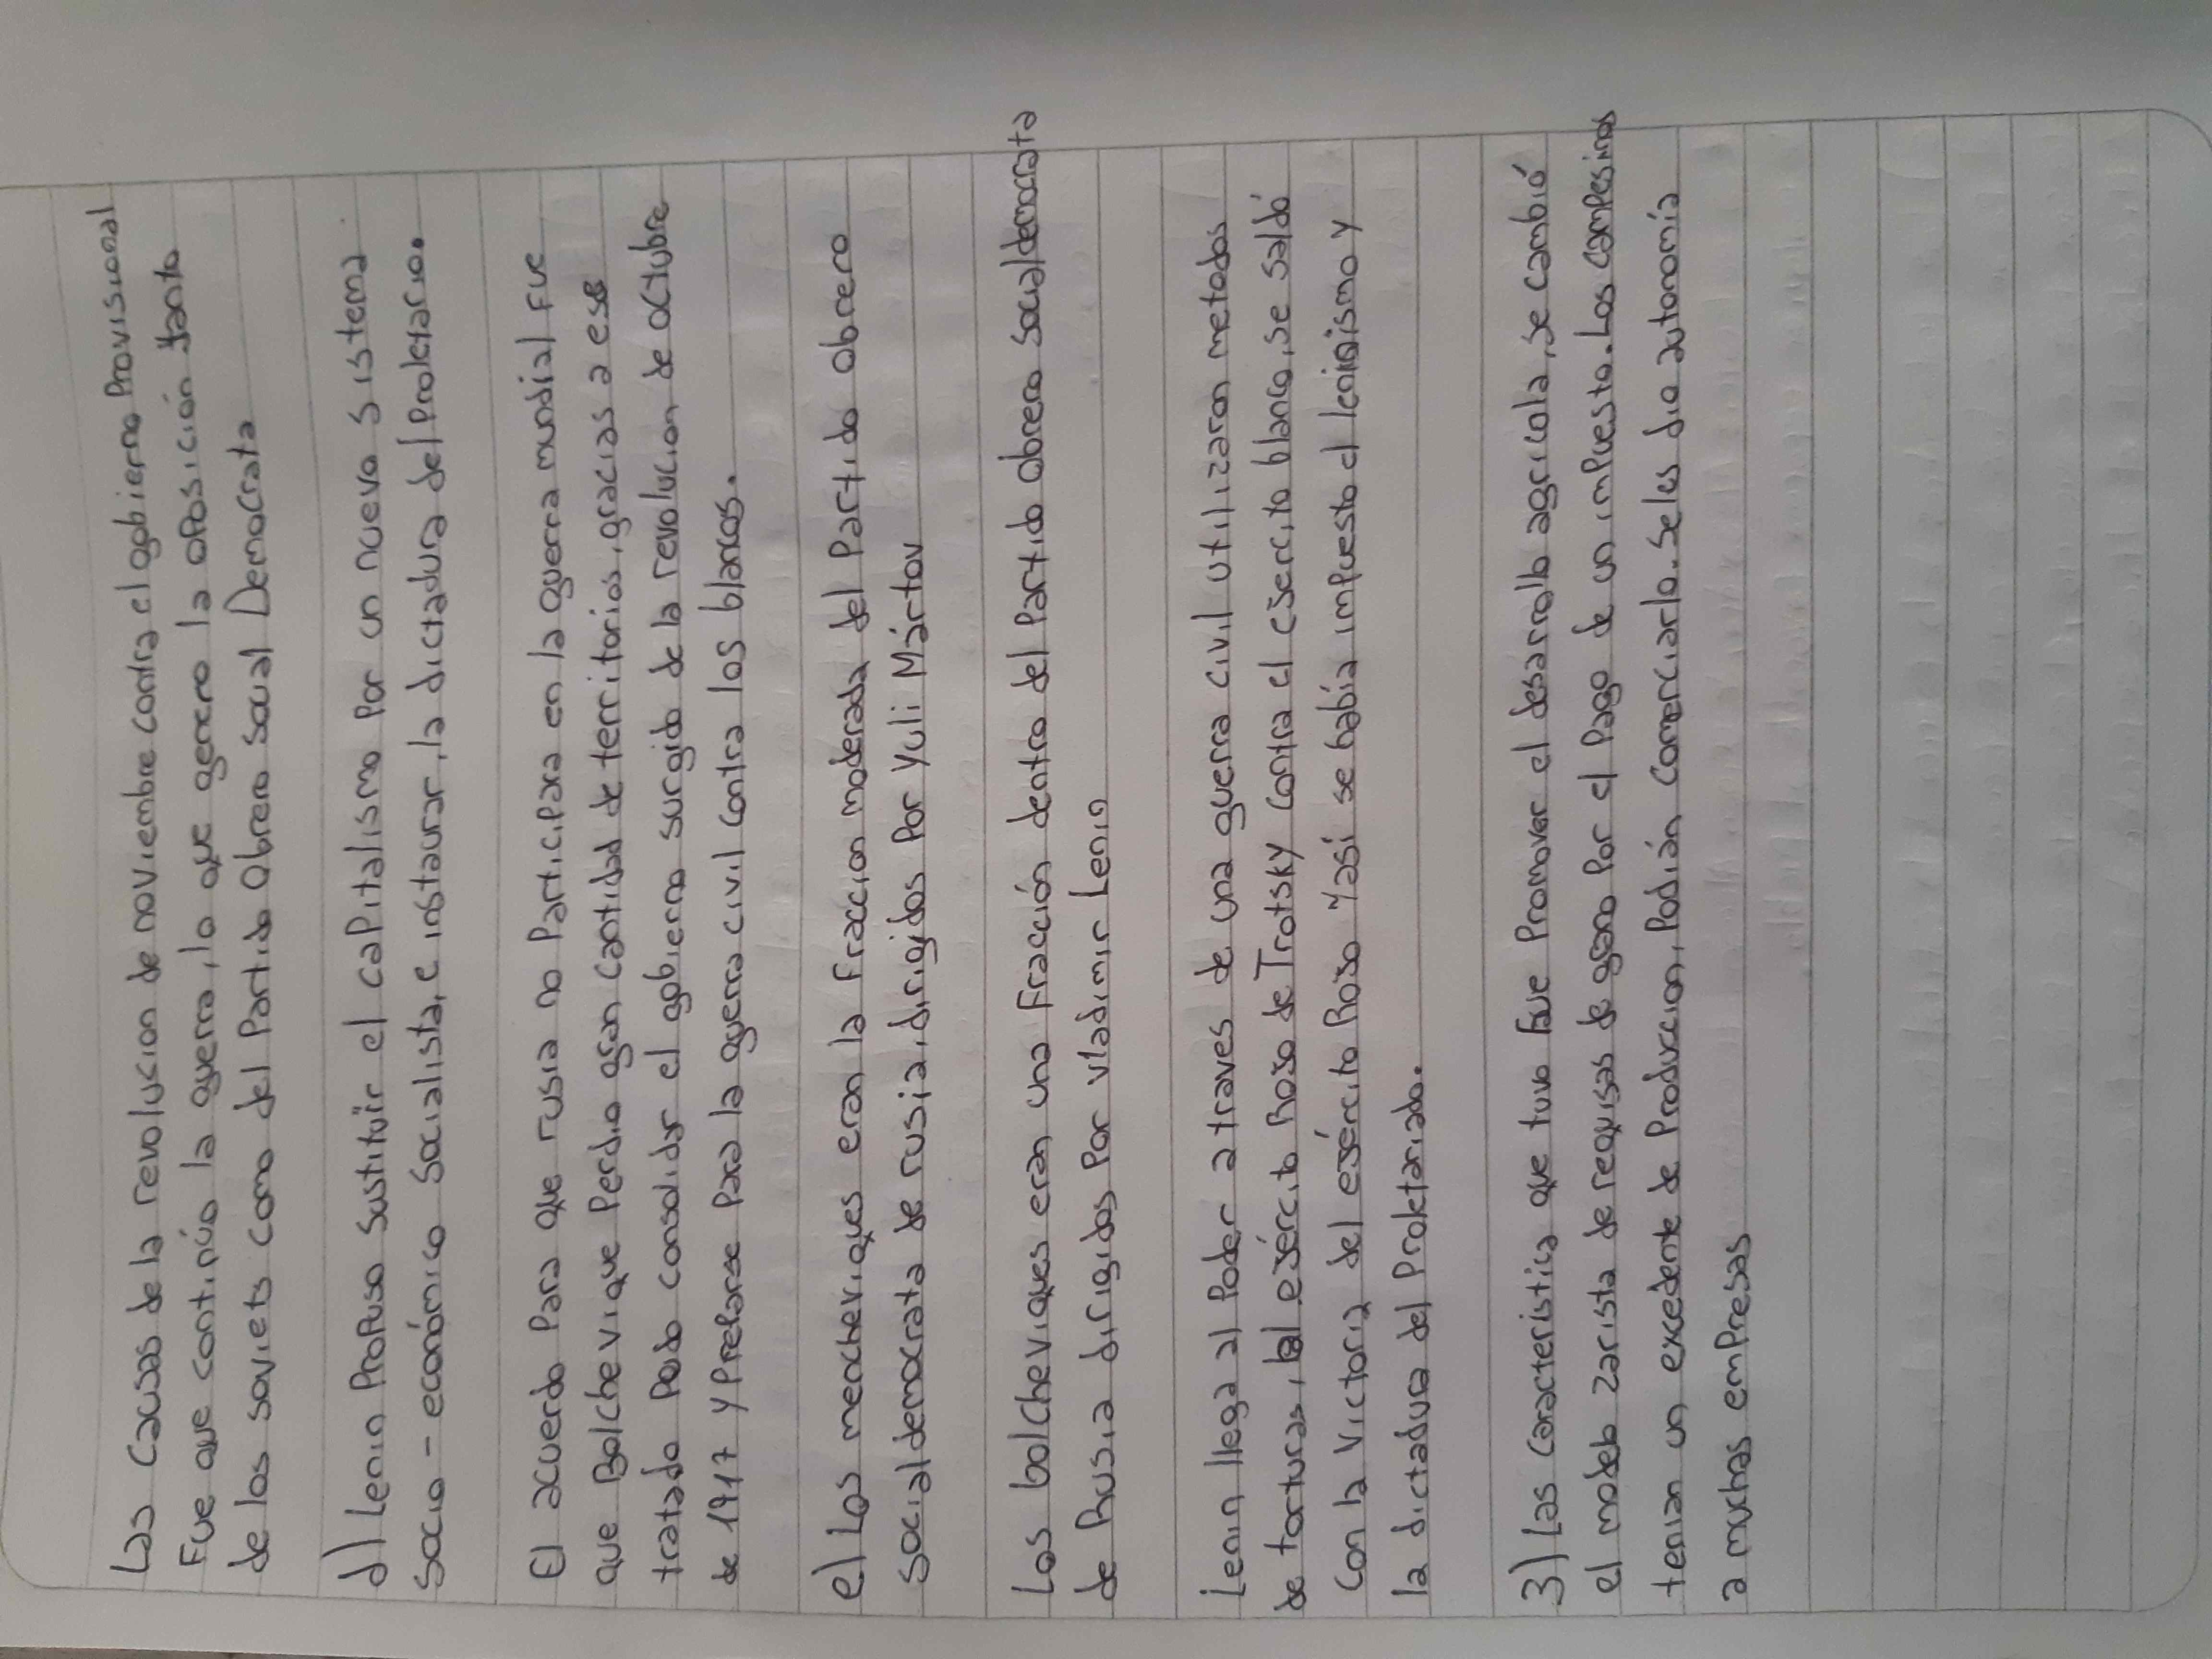 Las causas de la revolucion de noviembre contra el gobierno Provisional
Fue que continúo la guerra, lo que genero la oposición tanto
de los soviets como del Partido Obrero social Democrata
d) Lenin Propuso sustituir el capitalismo por un nuevo sistema
socio-económico socialista, e instaurar, la dictadura del proletario.
El acuerdo Para que rusia no Participara en la guerra mundial fue
que Bolchevique Perdio gran cantidad de territorios, gracias a ese
tratado Pudo consolidar el gobierno surgido de la revolucion de octubre
de 1917 y Prepararse Para la guerra civil contra los blancos.
e) Los mencheviques eran la fraccion moderada del Partido obrero
socialdemocrata de rusia, dirigidos Por Yuli Mártov
Los bolcheviques eran una Fracción dentro del Partido obrero socialdemocrata
de Rusia dirigidos Por Vladimir Lenin
Lenin llega al Poder a traves de una guerra civil utilizaron metodos
de torturas, el ejército Rojo de Trotsky contra el ejercito blanco, se saldó
con la victoria del ejército Rojo Y así se había impuesto el leninismo y
la dictadura del Proletariado.
3) Las caracteristica que tuvo fue Promover el desarrollo agricola, se cambió
el modelo zarista de requisas de grano Por el Pago de un impuesto. Los campesinos
tenian un excedente de Produccion, Podián comerciarlo. Se les dio autonomía
a muchas empresas